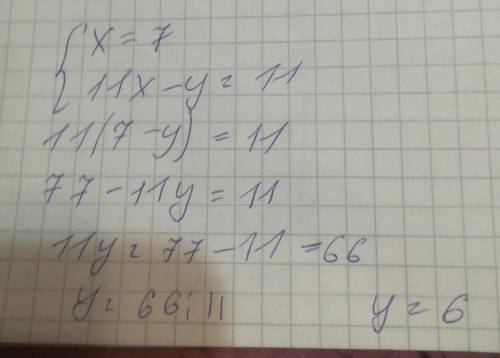 { x = 7
11x - y = 11
11(7 - y) = 11
77 - 11y = 11
11y = 77 - 11 = 66
y = 66 : 11 y = 6